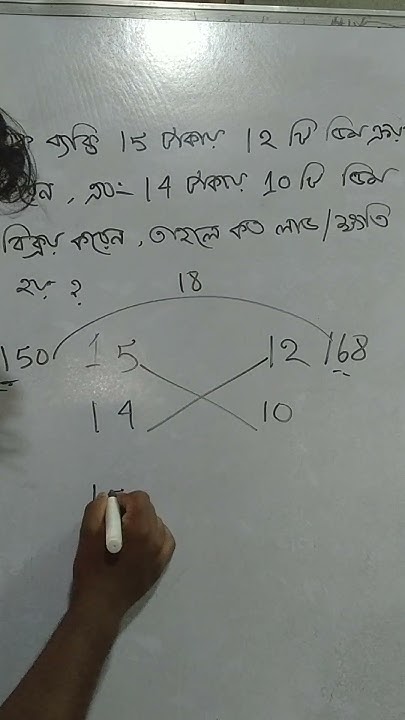 ব্যক্তি 15 টাকায় 12 টি ডিম ক্রয়
এবং 14 টাকায় 10 টি ডিম
বিক্রয় করেন, তাহলে কত লাভ/ক্ষতি
হয় ?
18
150 15 12 168
14 10